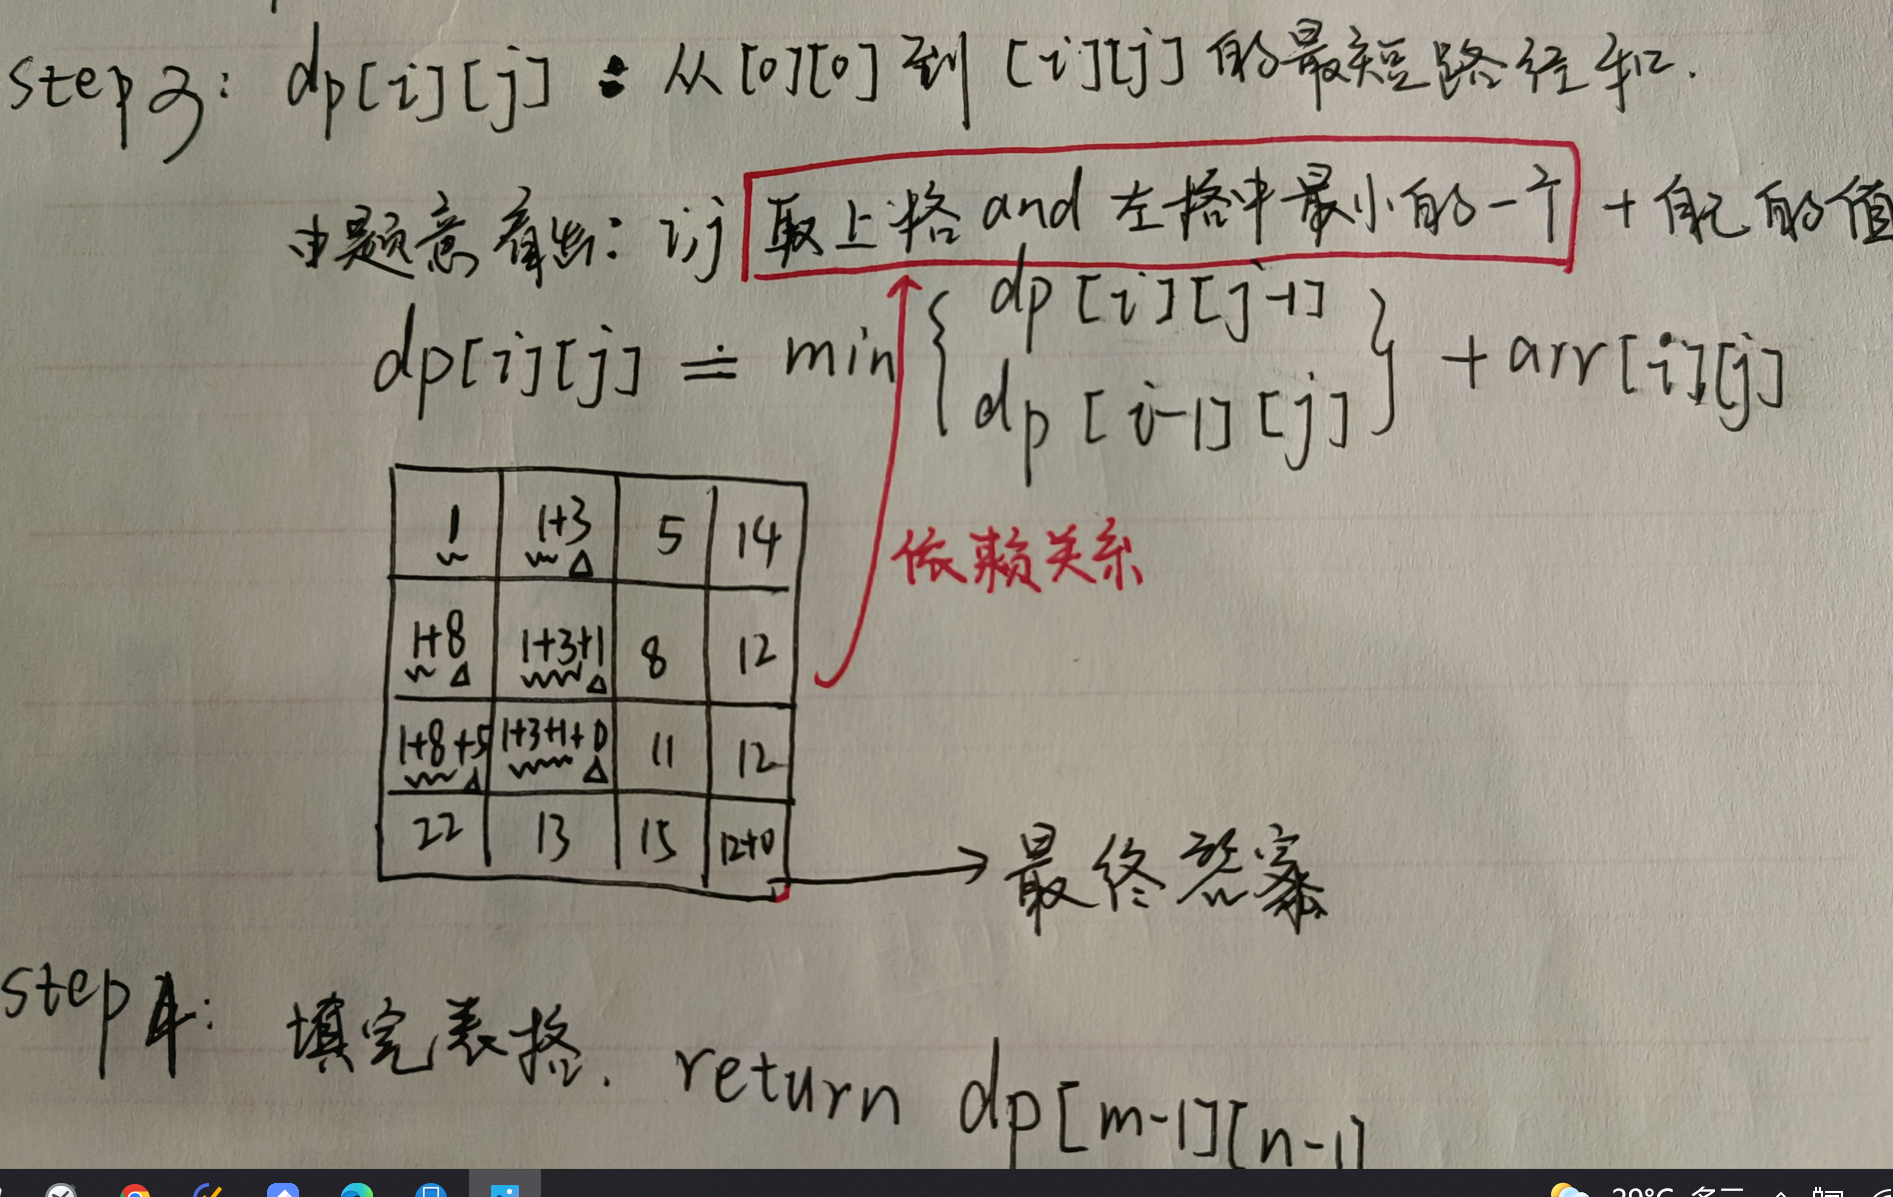 step3: dp[i][j]: 从[0][0]到[i][j]的最短路径和.
由题意看出: i,j 取上格and左格中最小的一个 + 自己的值
dp[i][j] = min { dp[i][j-1]
dp[i-1][j] } + arr[i][j]
1 1+3 5 14
依赖关系
1+8 1+3+1 8 12
1+8+5 1+3+1+0 11 12
22 13 15 12+0
最终答案
step4: 填完表格. return dp[m-1][n-1]